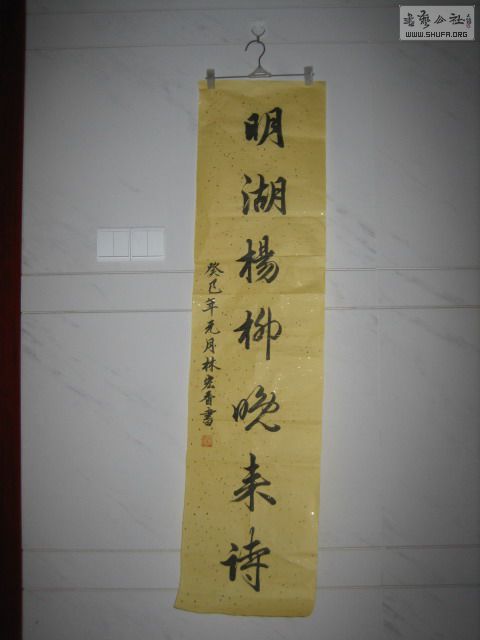 明湖楊柳晚来诗
癸巳年元月林宏香書
書藝公社
WWW.SHUFA.ORG